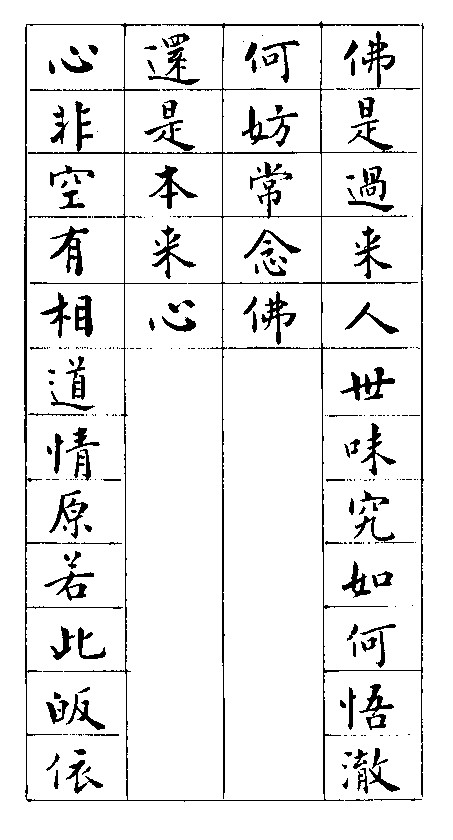 佛是過来人世味究如何悟澈
何妨常念佛
還是本来心
心非空有相道情原若此皈依